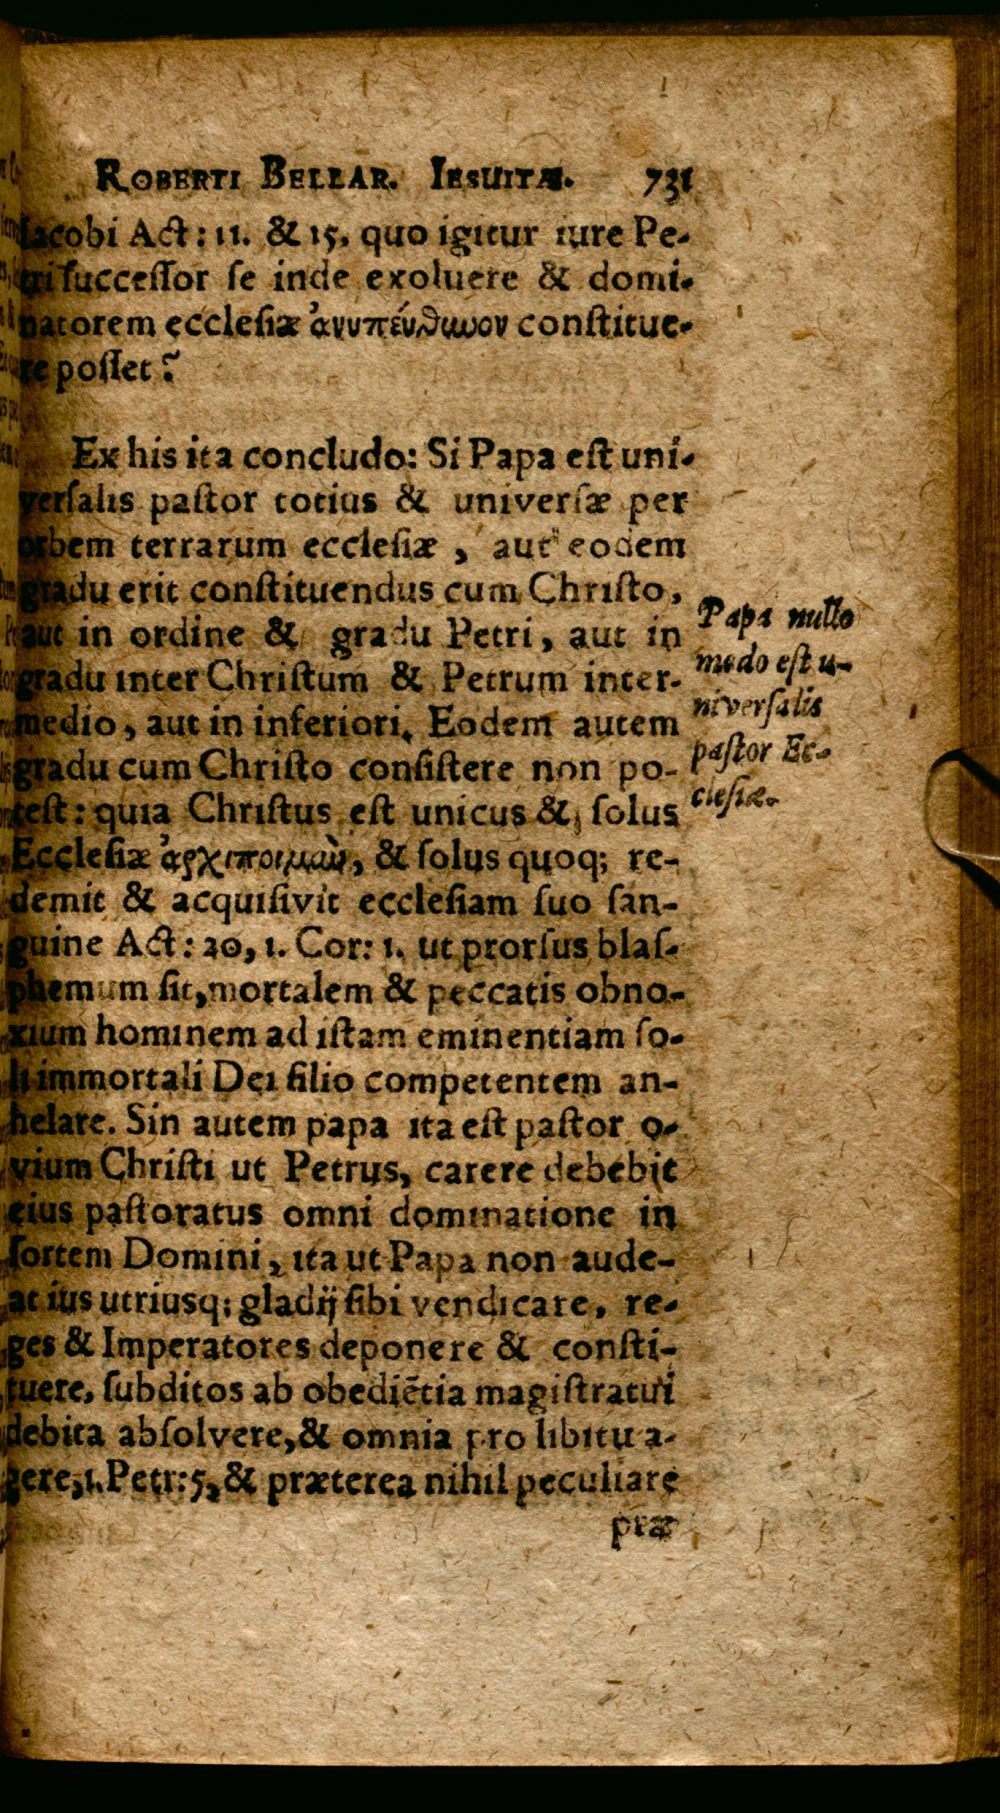 ROBERTI BELLAR. IESUITÆ. 731
Iacobi Act: 11. & 15. quo igitur iure Pe-
tri ſucceſſor ſe inde exoluere & domi-
natorem eccleſiæ ἀνυπεύθωον conſtitue-
re poſſet?
Ex his ita concludo: Si Papa eſt uni-
verſalis paſtor totius & univerſæ per
orbem terrarum eccleſiæ, aut eodem
gradu erit conſtituendus cum Chriſto,
aut in ordine & gradu Petri, aut in
gradu inter Chriſtum & Petrum inter-
medio, aut in inferiori. Eodem autem
gradu cum Chriſto conſiſtere non po-
teſt: quia Chriſtus eſt unicus & ſolus
Eccleſiæ ἀρχιποιμαὼ, & ſolus quoq; re-
demit & acquiſivit eccleſiam ſuo ſan-
guine Act: 20, 1. Cor: 1. ut prorſus blaſ-
phemum ſit, mortalem & peccatis obno-
xium hominem ad iſtam eminentiam ſo-
li immortali Dei filio competentem an-
helare. Sin autem papa ita eſt paſtor o-
vium Chriſti ut Petrus, carere debebit
eius paſtoratus omni dominatione in
ſortem Domini, ita ut Papa non aude-
at ius utriusq; gladij ſibi vendicare, re-
ges & Imperatores deponere & conſti-
tuere, ſubditos ab obediẽtia magiſtratui
debita abſolvere, & omnia pro libitu a-
gere, 1. Petr: 5, & præterea nihil peculiare
præ
Papa nullo
modo eſt u-
niverſalis
paſtor Ec-
cleſiæ.